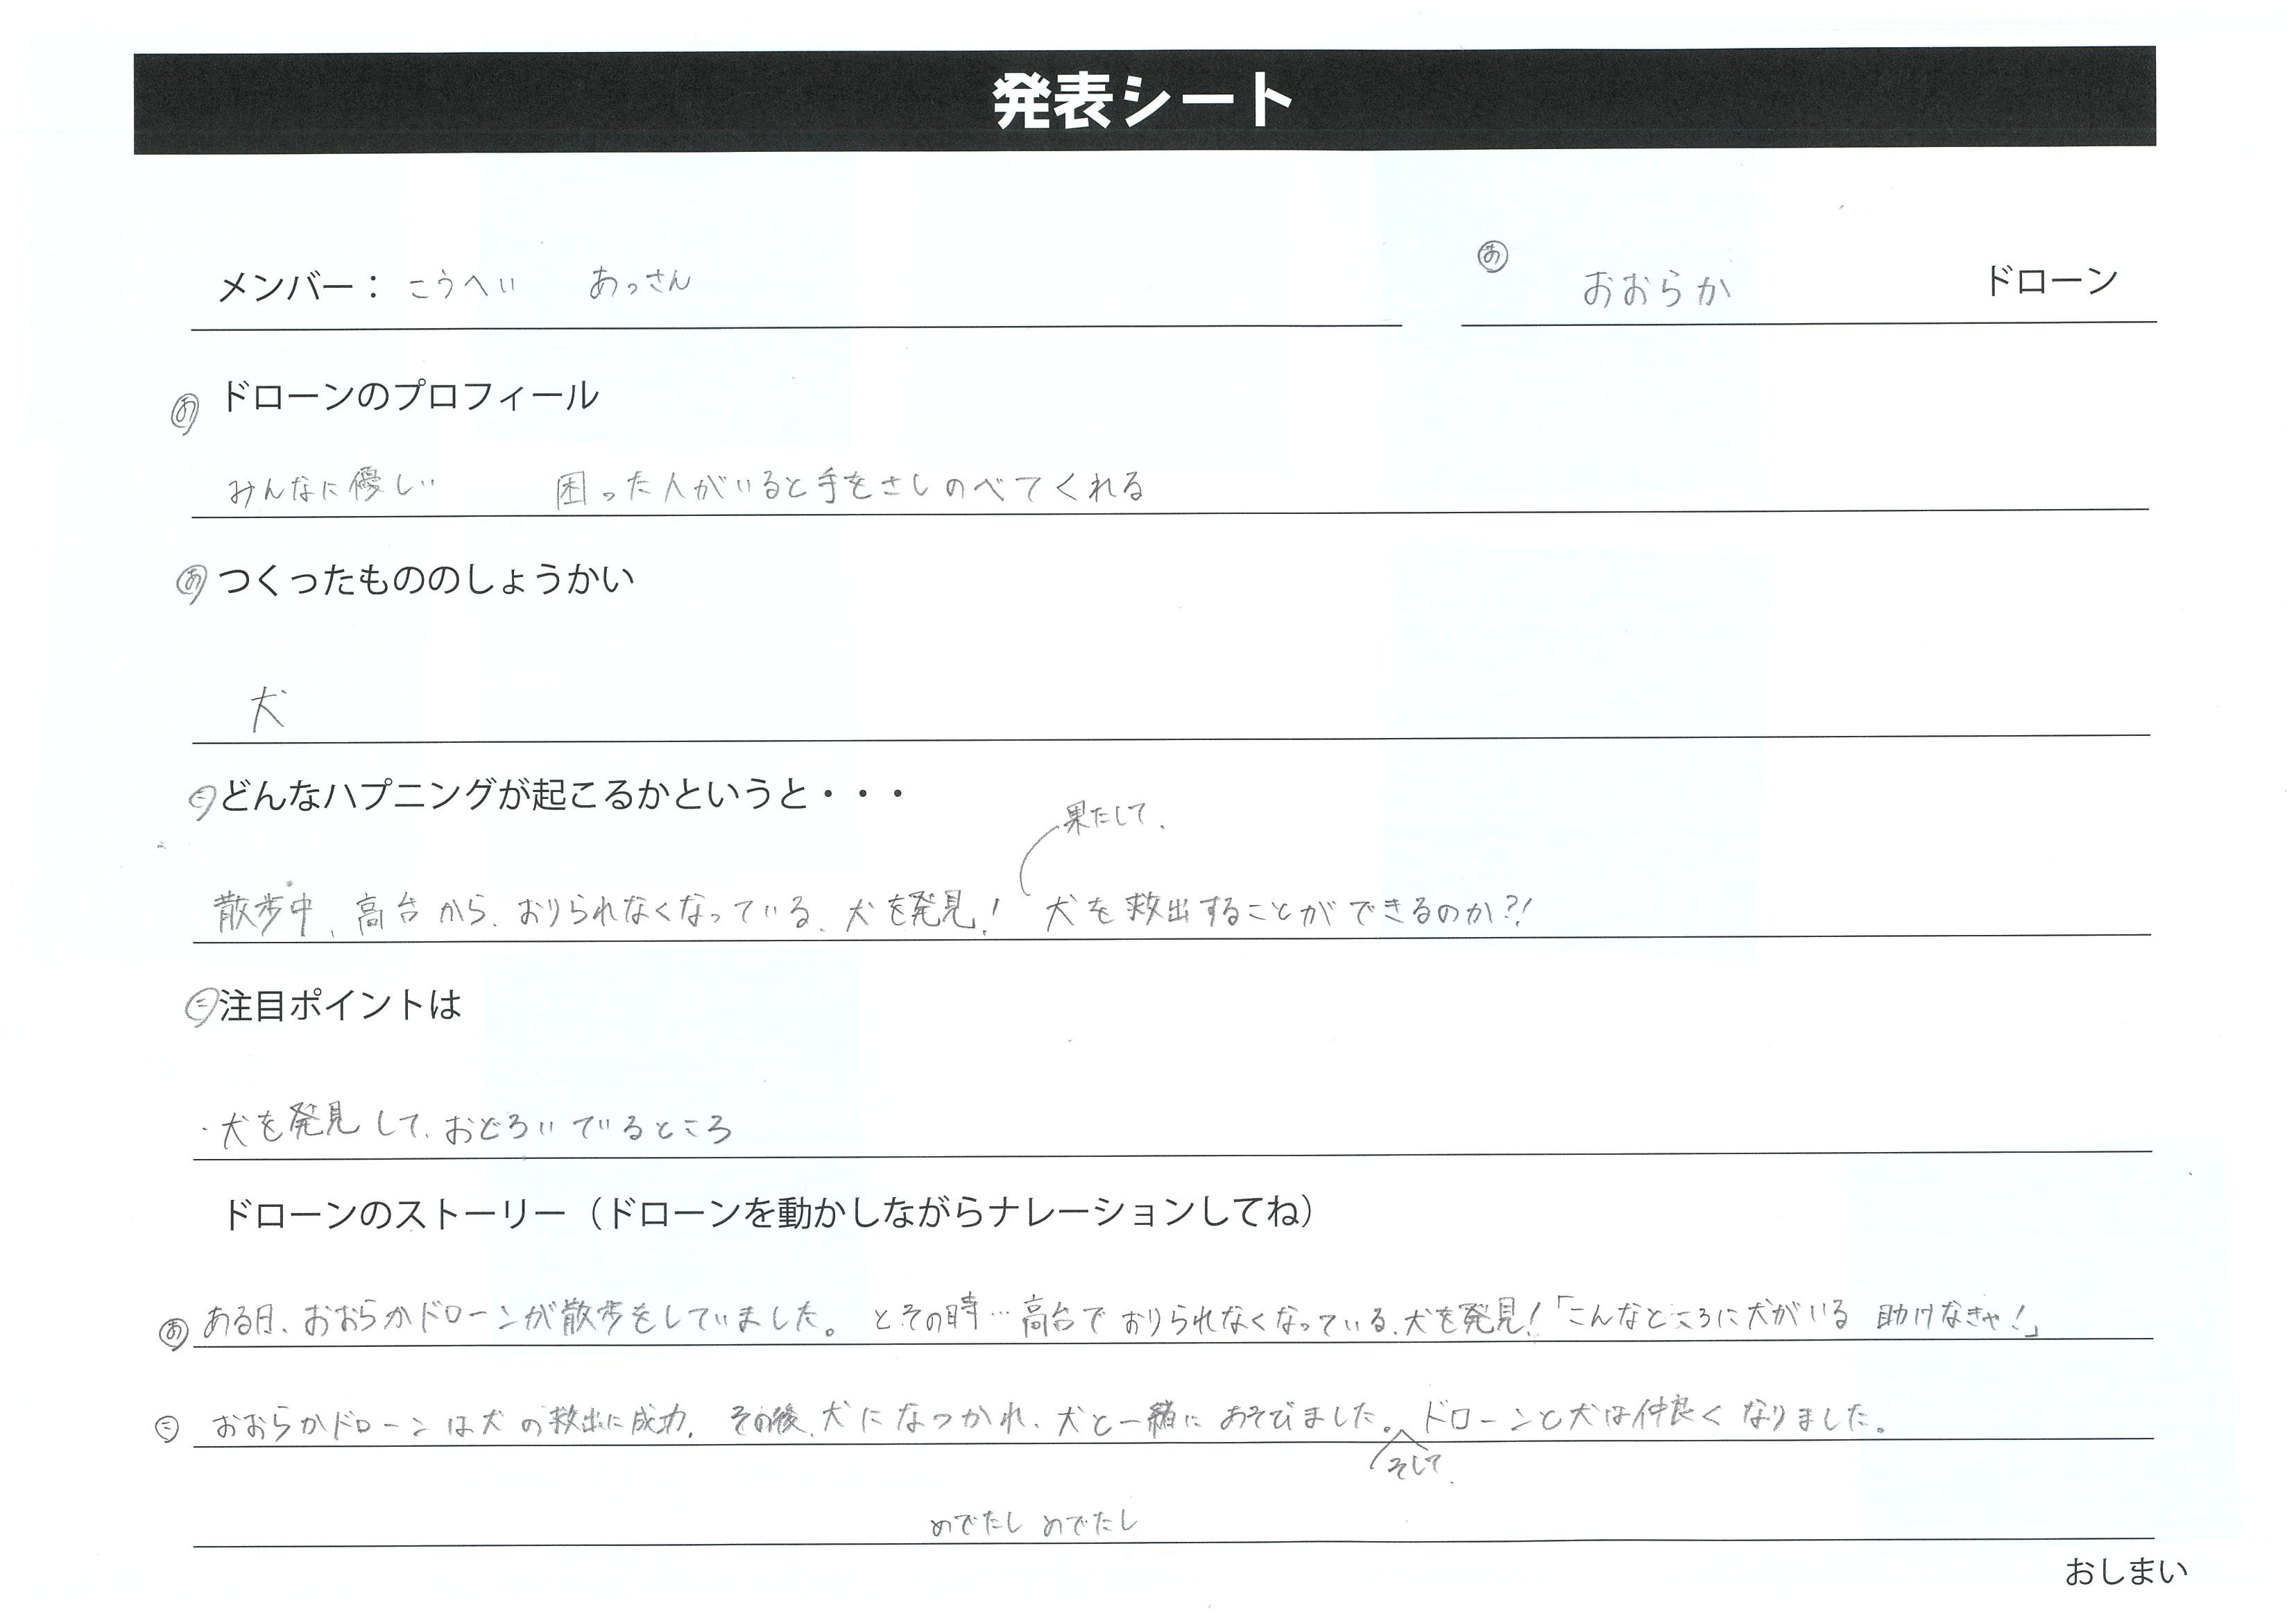 発表シート
メンバー： こうへい あっさん
あ おおらか ドローン
あ ドローンのプロフィール
みんなに優しい 困った人がいると手をさしのべてくれる
あ つくったもののしょうかい
犬
こ どんなハプニングが起こるかというと・・・
果たして、
散歩中、高台から、おりられなくなっている、犬を発見！ 犬を救出することができるのか？！
こ 注目ポイントは
・犬を発見して、おどろいているところ
ドローンのストーリー（ドローンを動かしながらナレーションしてね）
あ ある日、おおらかドローンが散歩をしていました。 とその時…高台でおりられなくなっている、犬を発見！「こんなところに犬がいる 助けなきゃ！」
こ おおらかドローンは犬の救出に成功、その後、犬になつかれ、犬と一緒にあそびました。ドローンと犬は仲良くなりました。
そして、
めでたし めでたし
おしまい